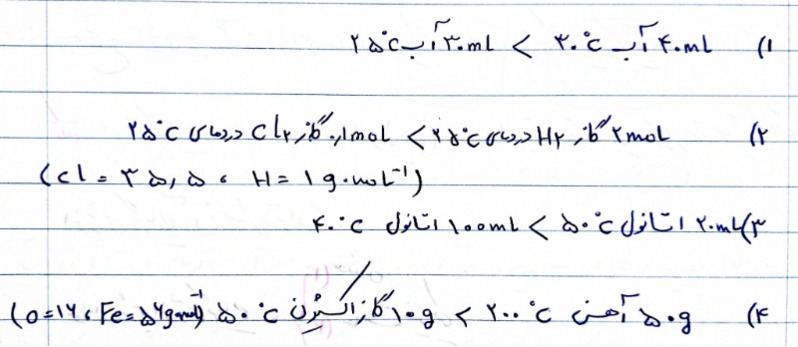 ۱) ۴۰mL آب ۳۰°C > ۳۰mL آب ۲۵°C
۲) ۲mol گاز H₂ در دمای ۲۵°C > ۰٫۱mol گاز Cl₂ در دمای ۲۵°C
(Cl = ۳۵٫۵ ، H = ۱ g.mol⁻¹)
۳) ۲۰mL اتانول ۵۰°C > ۱۰۰mL اتانول ۴۰°C
۴) ۵۰g آهن ۲۰۰°C > ۱۰g گاز اکسیژن ۵۰°C (O=۱۶ ، Fe=۵۶g.mol⁻¹)